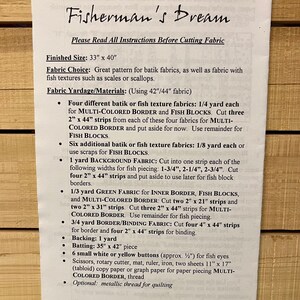 Fisherman's Dream
Please Read All Instructions Before Cutting Fabric
Finished Size: 33" x 40"
Fabric Choice: Great pattern for batik fabrics, as well as fabric with
fish textures such as scales or scallops.
Fabric Yardage/Materials: (Using 42"/44" fabric)
• Four different batik or fish texture fabrics: 1/4 yard each
for MULTI-COLORED BORDER and FISH BLOCKS. Cut three
2" x 44" strips from each of these four fabrics for MULTI-
COLORED BORDER and put aside for now. Use remainder for
FISH BLOCKS.
• Six additional batik or fish texture fabrics: 1/8 yard each or
use scraps for FISH BLOCKS.
• 1 yard BACKGROUND FABRIC: Cut into one strip each of the
following widths for fish piecing: 1-3/4", 2-1/4", 2-3/4". Cut
four 2" x 44" strips and put aside to use later for fish block
borders.
• 1/3 yard GREEN FABRIC for INNER BORDER, FISH BLOCKS,
and MULTI-COLORED BORDER. Cut two 2" x 21" strips and
two 2" x 31" strips. Cut three 2" x 44" strips for MULTI-
COLORED BORDER. Use remainder for fish piecing.
• 3/4 yard BORDER/BINDING FABRIC: Cut four 4" x 44" strips
for border and four 2" x 44" strips for binding.
• Backing: 1 yard
• Batting: 35" x 42" piece
• 6 small white or yellow buttons (approx. ½") for fish eyes
• Scissors, rotary cutter, mat, ruler, iron, two sheets 11" x 17"
(tabloid) copy paper or graph paper for paper piecing MULTI-
COLORED BORDER, thread
• Optional: metallic thread for quilting